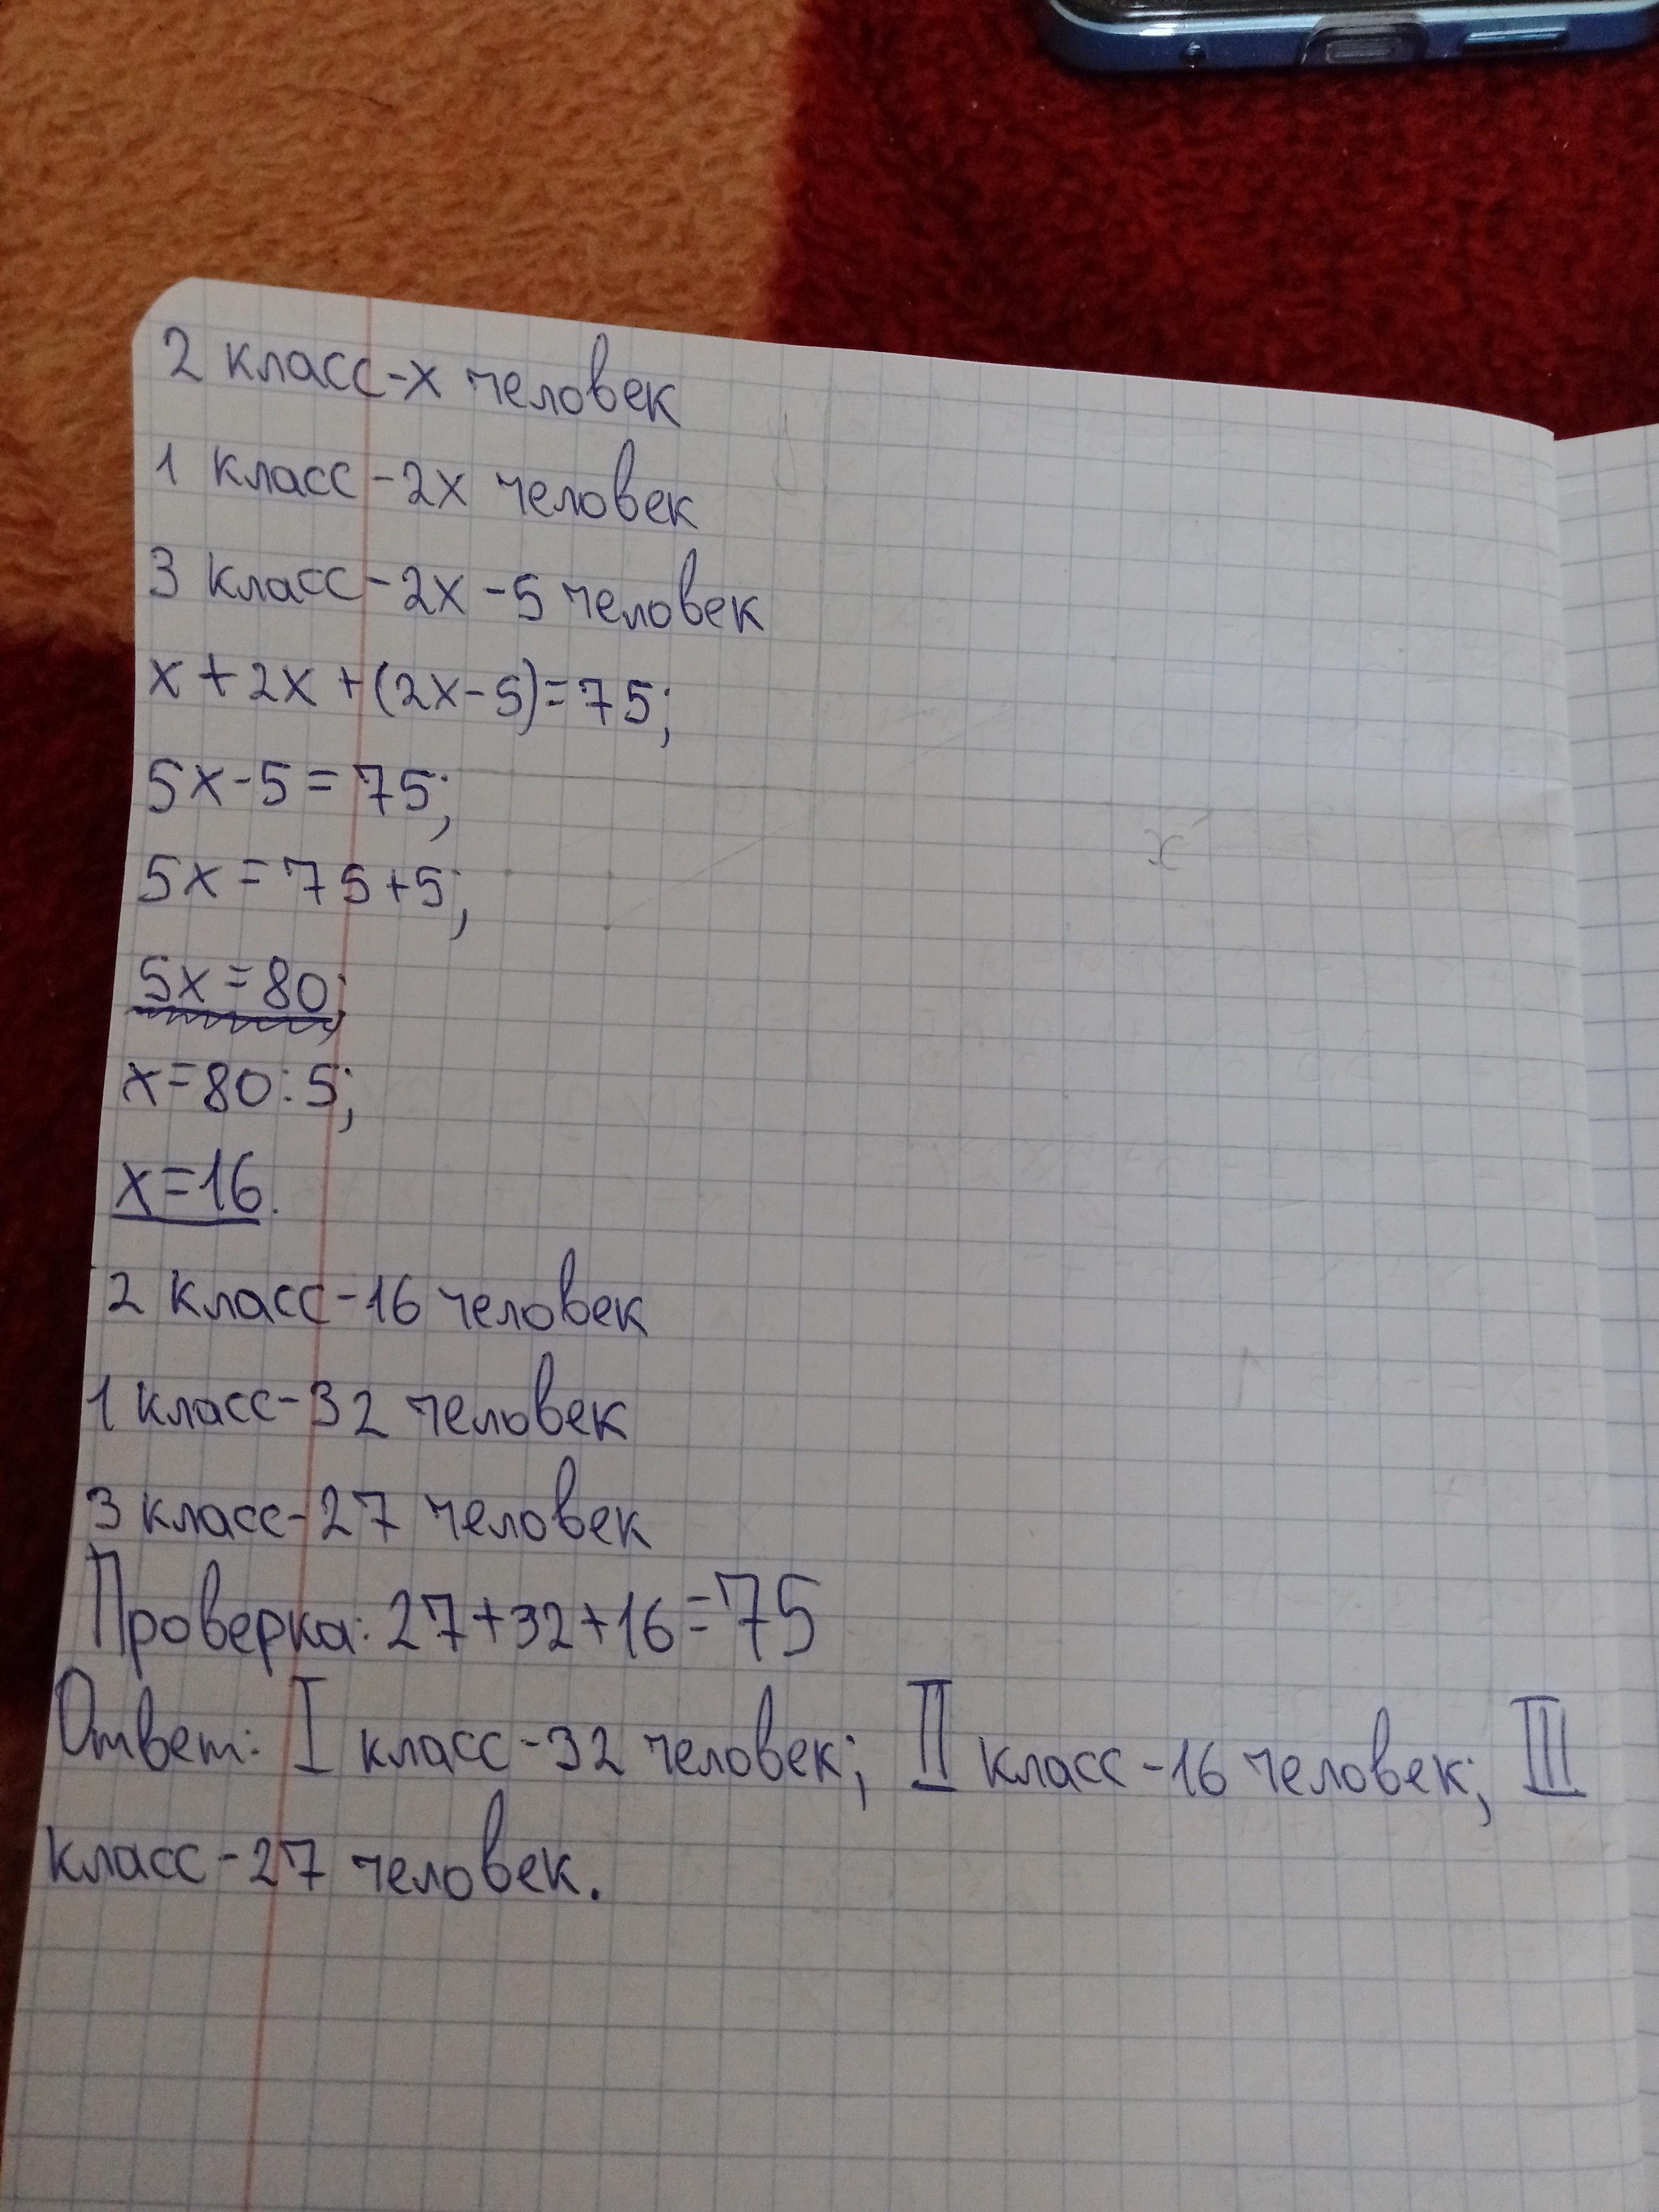 2 класс-х человек
1 класс-2х человек
3 класс-2х-5 человек
х+2х+(2х-5)=75;
5х-5=75;
5х=75+5;
5х=80;
х=80:5;
х=16.
2 класс-16 человек
1 класс-32 человек
3 класс-27 человек
Проверка: 27+32+16=75
Ответ: I класс-32 человек; II класс-16 человек; III
класс-27 человек.